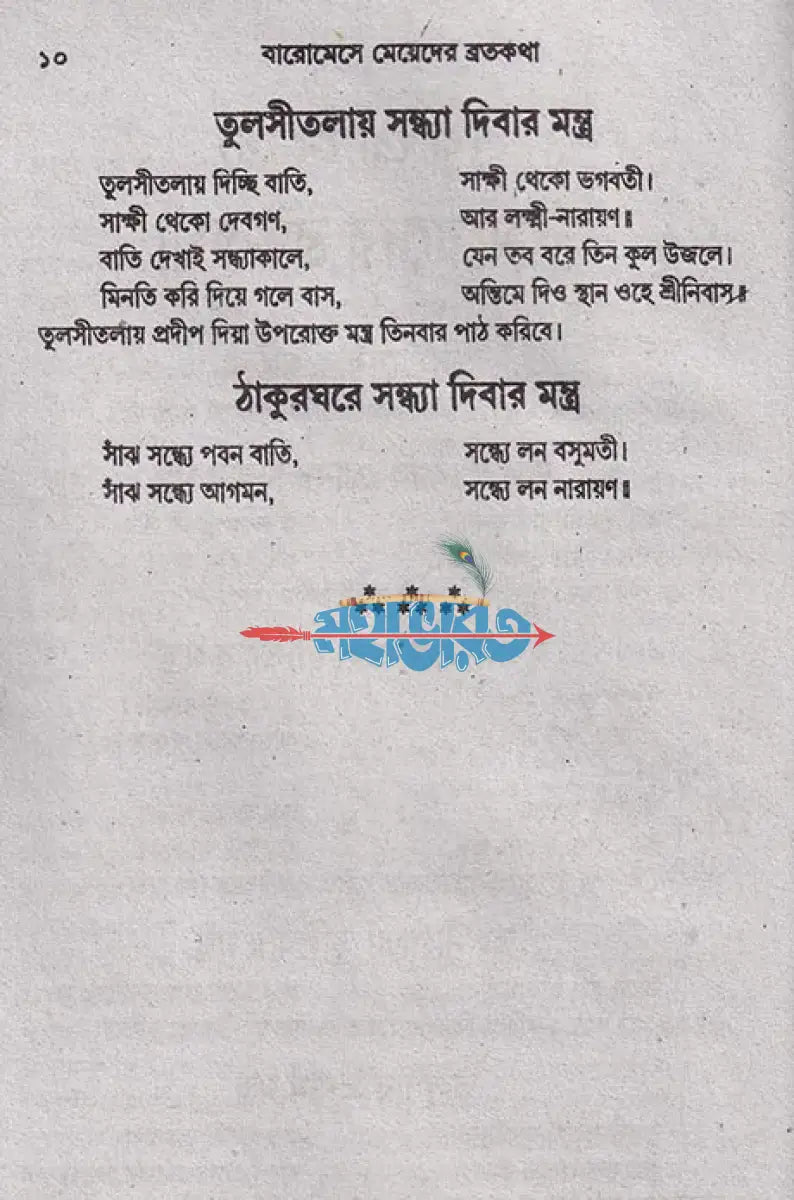 ১০ বারোমেসে মেয়েদের ব্রতকথা
তুলসীতলায় সন্ধ্যা দিবার মন্ত্র
তুলসীতলায় দিচ্ছি বাতি, সাক্ষী থেকো ভগবতী।
সাক্ষী থেকো দেবগণ, আর লক্ষ্মী-নারায়ণ॥
বাতি দেখাই সন্ধ্যাকালে, যেন তব বরে তিন কুল উজলে।
মিনতি করি দিয়ে গলে বাস, অন্তিমে দিও স্থান ওহে শ্রীনিবাস॥
তুলসীতলায় প্রদীপ দিয়া উপরোক্ত মন্ত্র তিনবার পাঠ করিবে।
ঠাকুরঘরে সন্ধ্যা দিবার মন্ত্র
সাঁঝ সন্ধ্যে পবন বাতি, সন্ধ্যে লন বসুমতী।
সাঁঝ সন্ধ্যে আগমন, সন্ধ্যে লন নারায়ণ॥
মহাভারত